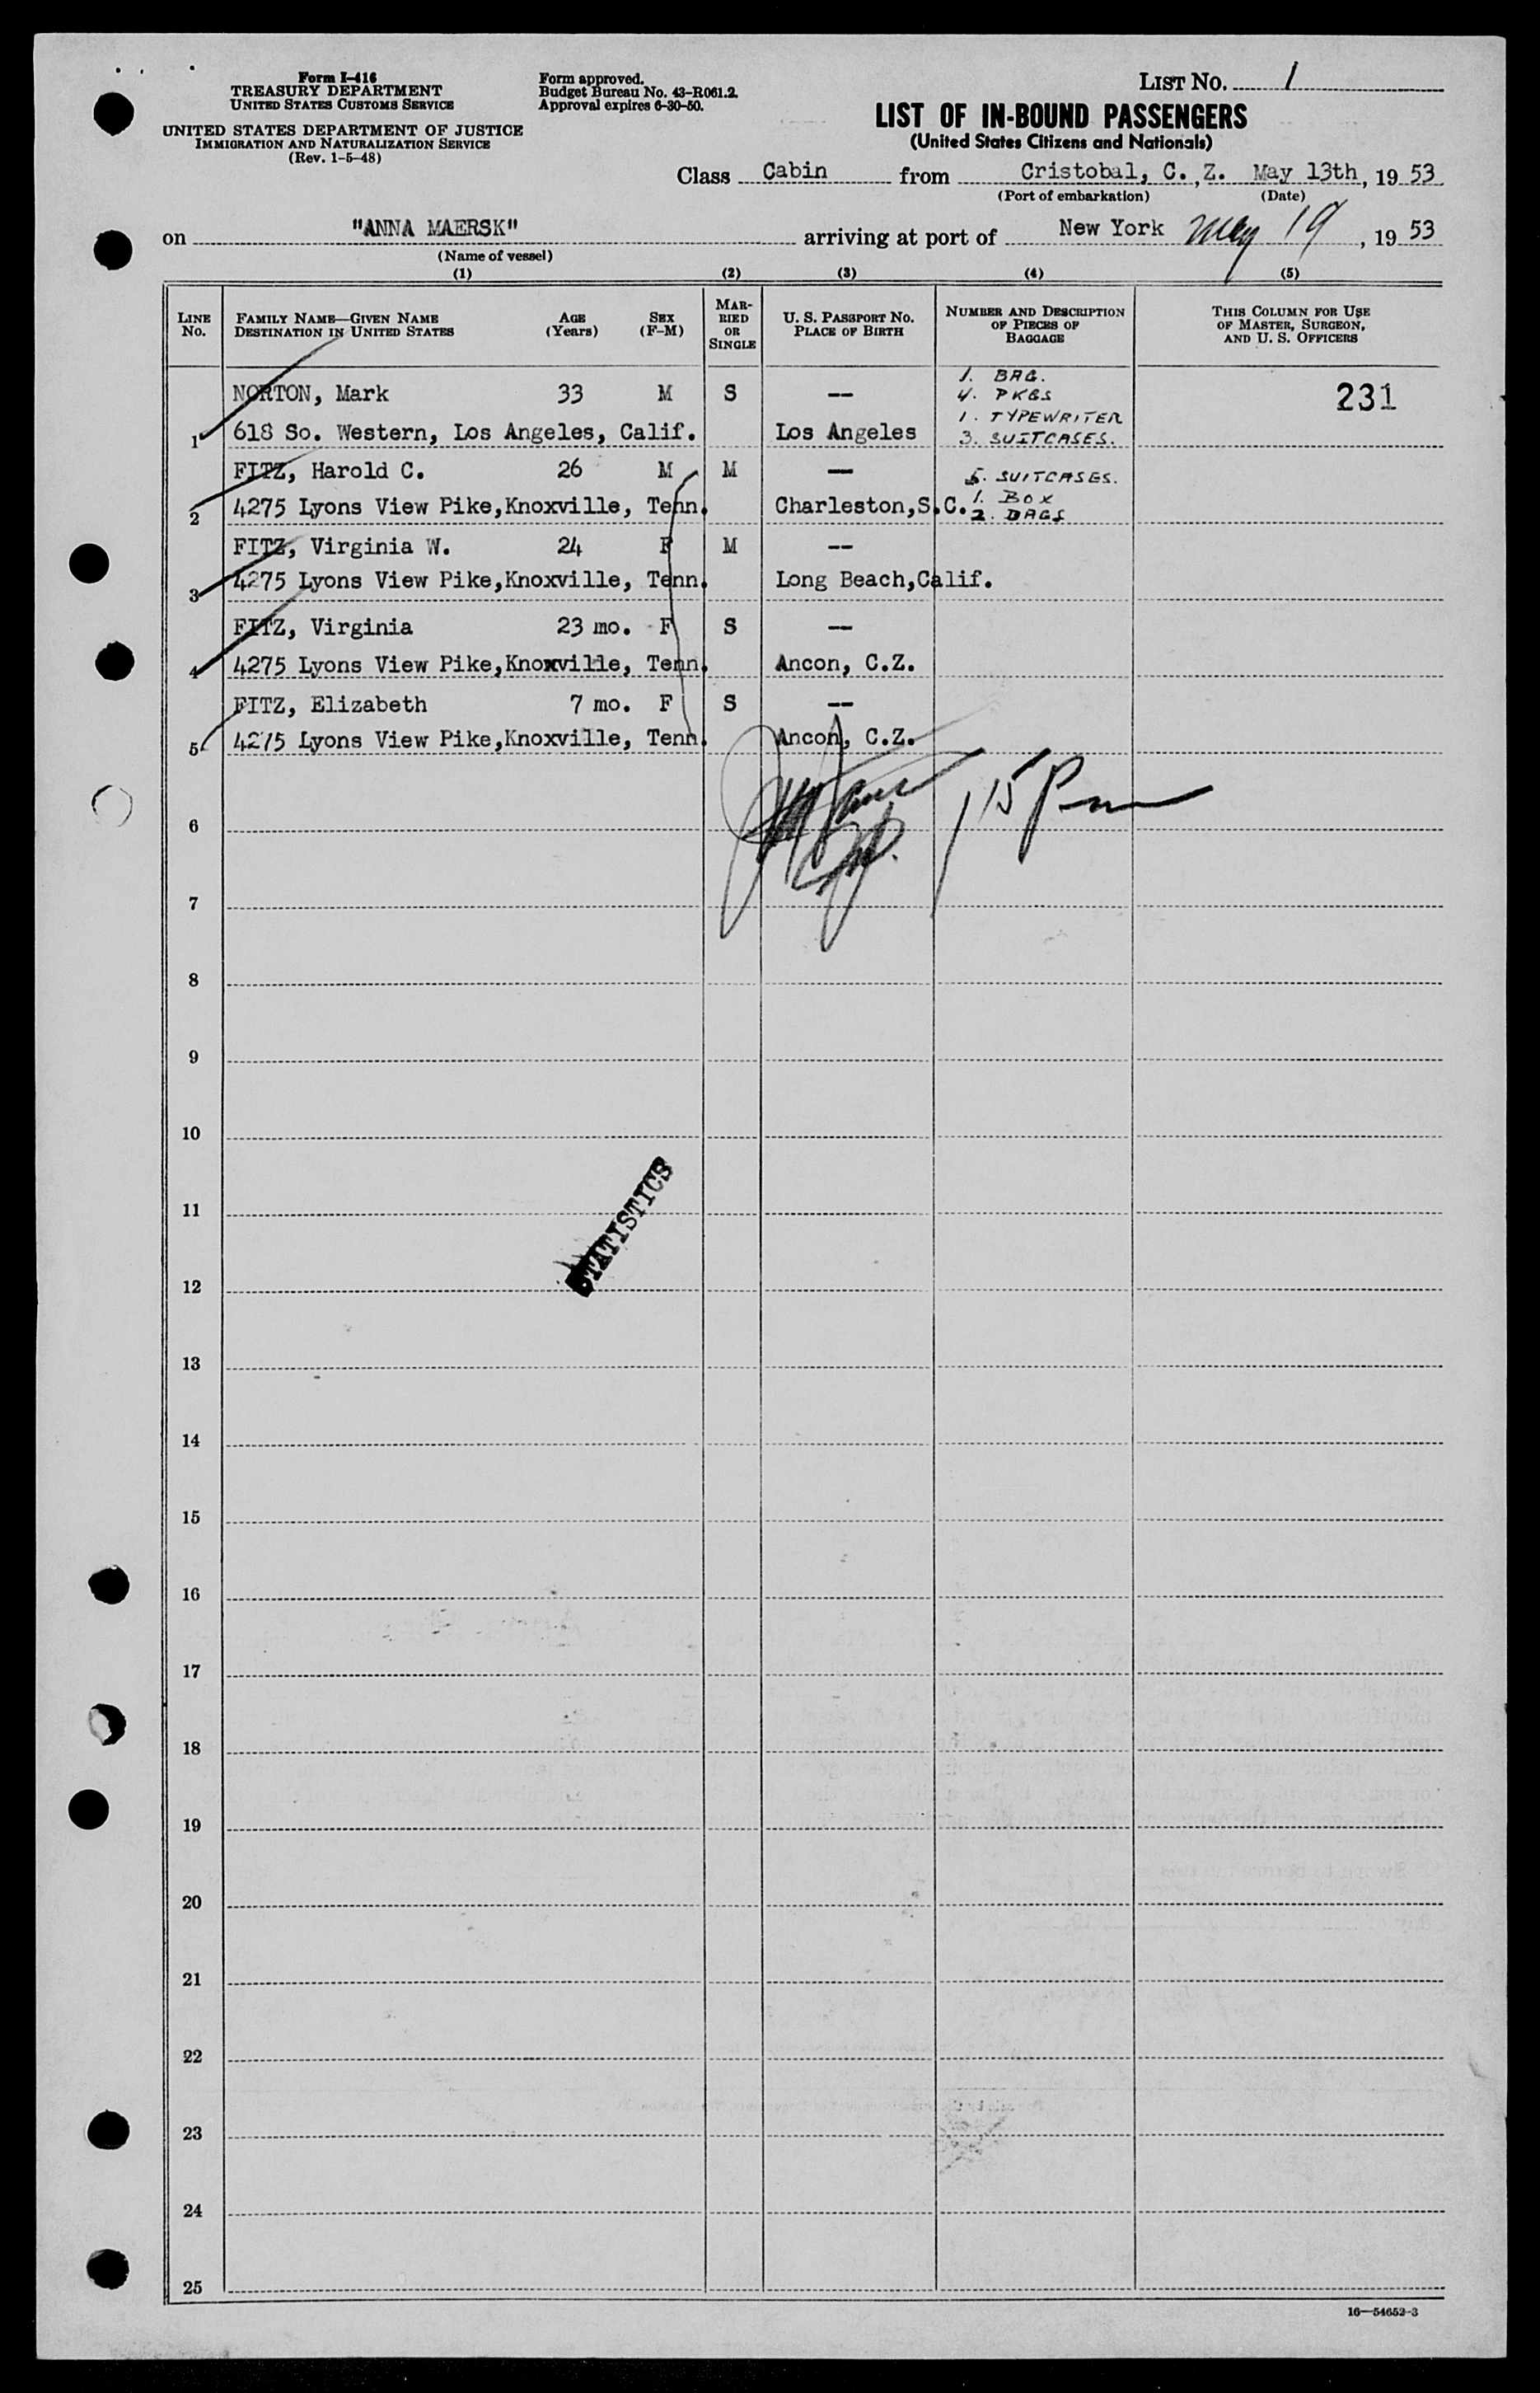 Form I-416
TREASURY DEPARTMENT
UNITED STATES CUSTOMS SERVICE
UNITED STATES DEPARTMENT OF JUSTICE
IMMIGRATION AND NATURALIZATION SERVICE
(Rev. 1-5-48)
Form approved.
Budget Bureau No. 43-R061.2.
Approval expires 6-30-50.
LIST No. 1
LIST OF IN-BOUND PASSENGERS
(United States Citizens and Nationals)
Class Cabin from Cristobal, C. Z. May 13th, 19 53
(Port of embarkation) (Date)
on "ANNA MAERSK" arriving at port of New York May 19, 19 53
(Name of vessel)
(1) (2) (3) (4) (5)
LINE No. FAMILY NAME—GIVEN NAME DESTINATION IN UNITED STATES AGE (Years) SEX (F-M) MARRIED OR SINGLE U. S. PASSPORT NO. PLACE OF BIRTH NUMBER AND DESCRIPTION OF PIECES OF BAGGAGE THIS COLUMN FOR USE OF MASTER, SURGEON, AND U. S. OFFICERS
NORTON, Mark 33 M S -- 1. BAG. 4. PKGS 231
1 618 So. Western, Los Angeles, Calif. Los Angeles 1. TYPEWRITER 3. SUITCASES.
FITZ, Harold C. 26 M M -- 5. SUITCASES.
2 4275 Lyons View Pike,Knoxville, Tenn. Charleston,S.C. 1. BOX 2. BAGS
FITZ, Virginia W. 24 F M --
3 4275 Lyons View Pike,Knoxville, Tenn. Long Beach,Calif.
FITZ, Virginia 23 mo. F S --
4 4275 Lyons View Pike,Knoxville, Tenn. Ancon, C.Z.
FITZ, Elizabeth 7 mo. F S --
5 4275 Lyons View Pike,Knoxville, Tenn. Ancon, C.Z.
115 Pm
6
7
8
9
10
11
STATISTICS
12
13
14
15
16
17
18
19
20
21
22
23
24
25
16—54652-3